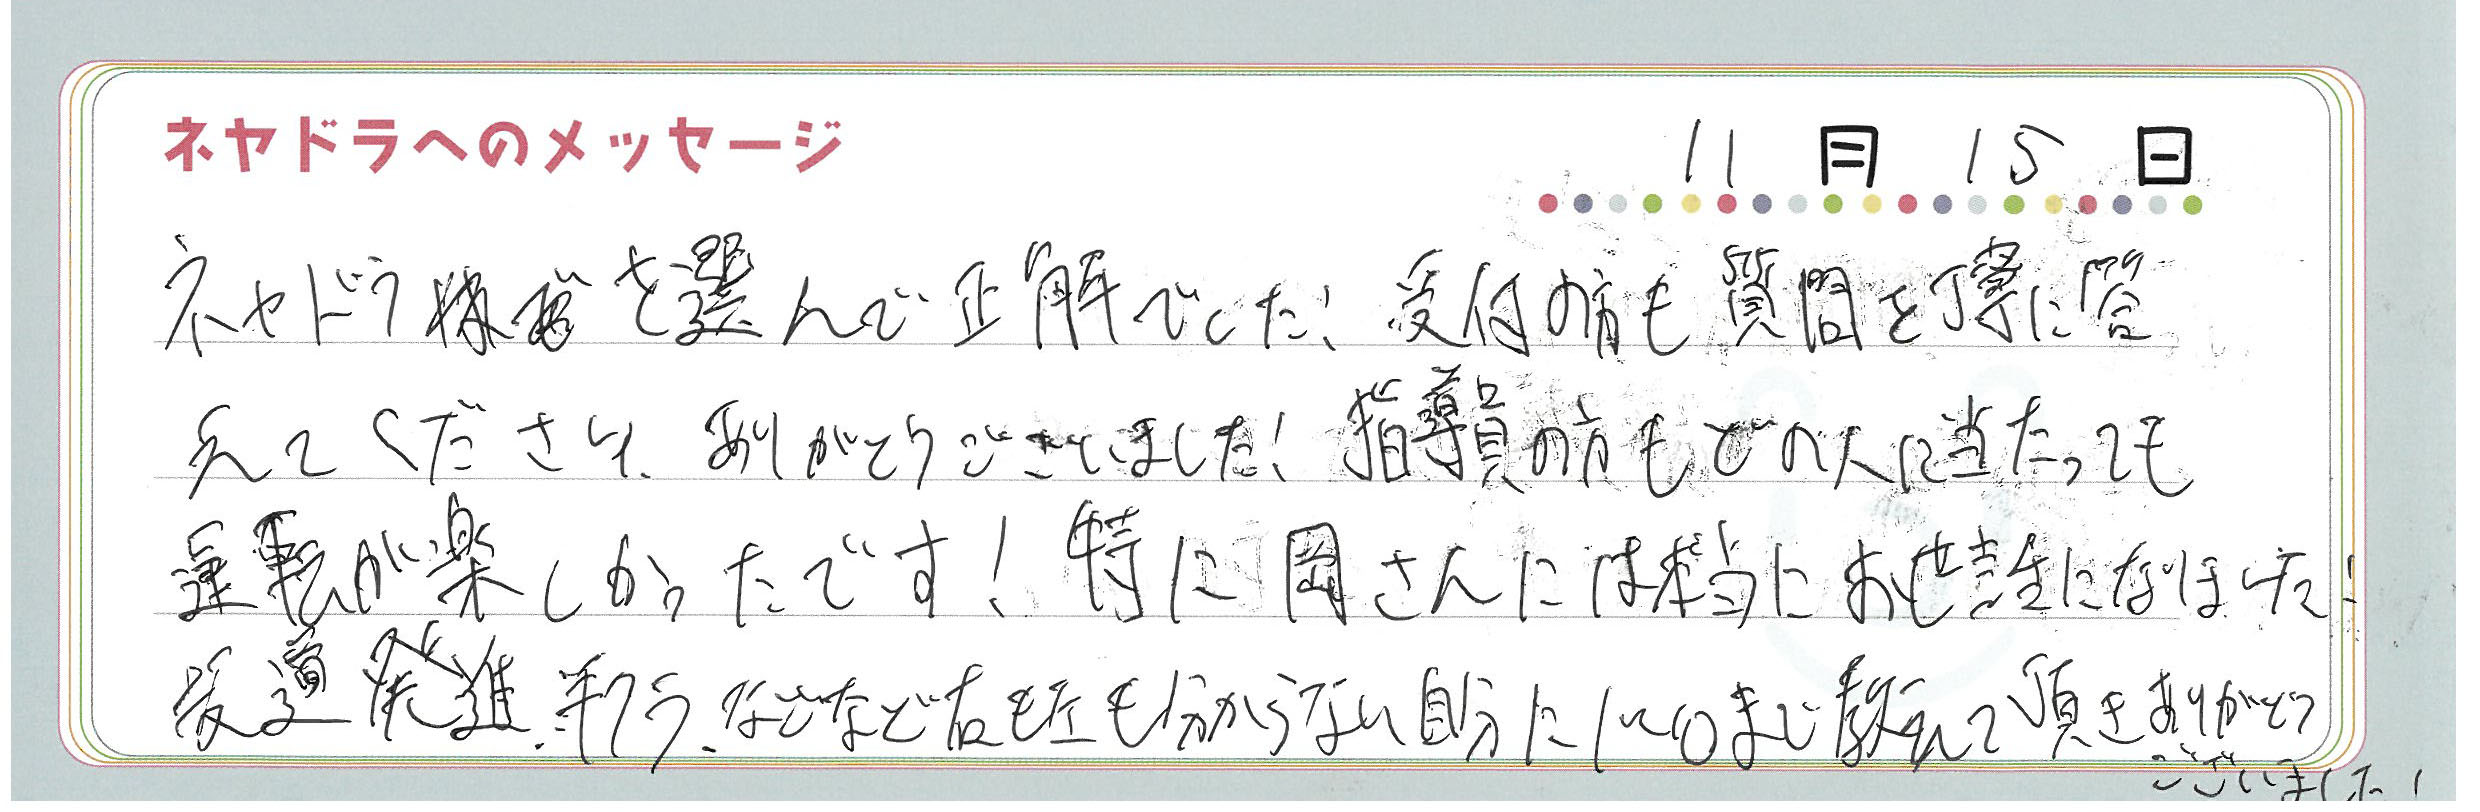 ネヤドラへのメッセージ
11月15日
ネヤドラ様を選んで正解でした!受付の方も質問を丁寧に答
えてくださり、ありがとうございました!指導員の方もどの人に当たっても
運転が楽しかったです!特に岡さんには本当にお世話になりました!
坂道発進、半クラ、などなど右も左も分からない自分に1〜10まで教えて頂きありがとう
ございました!